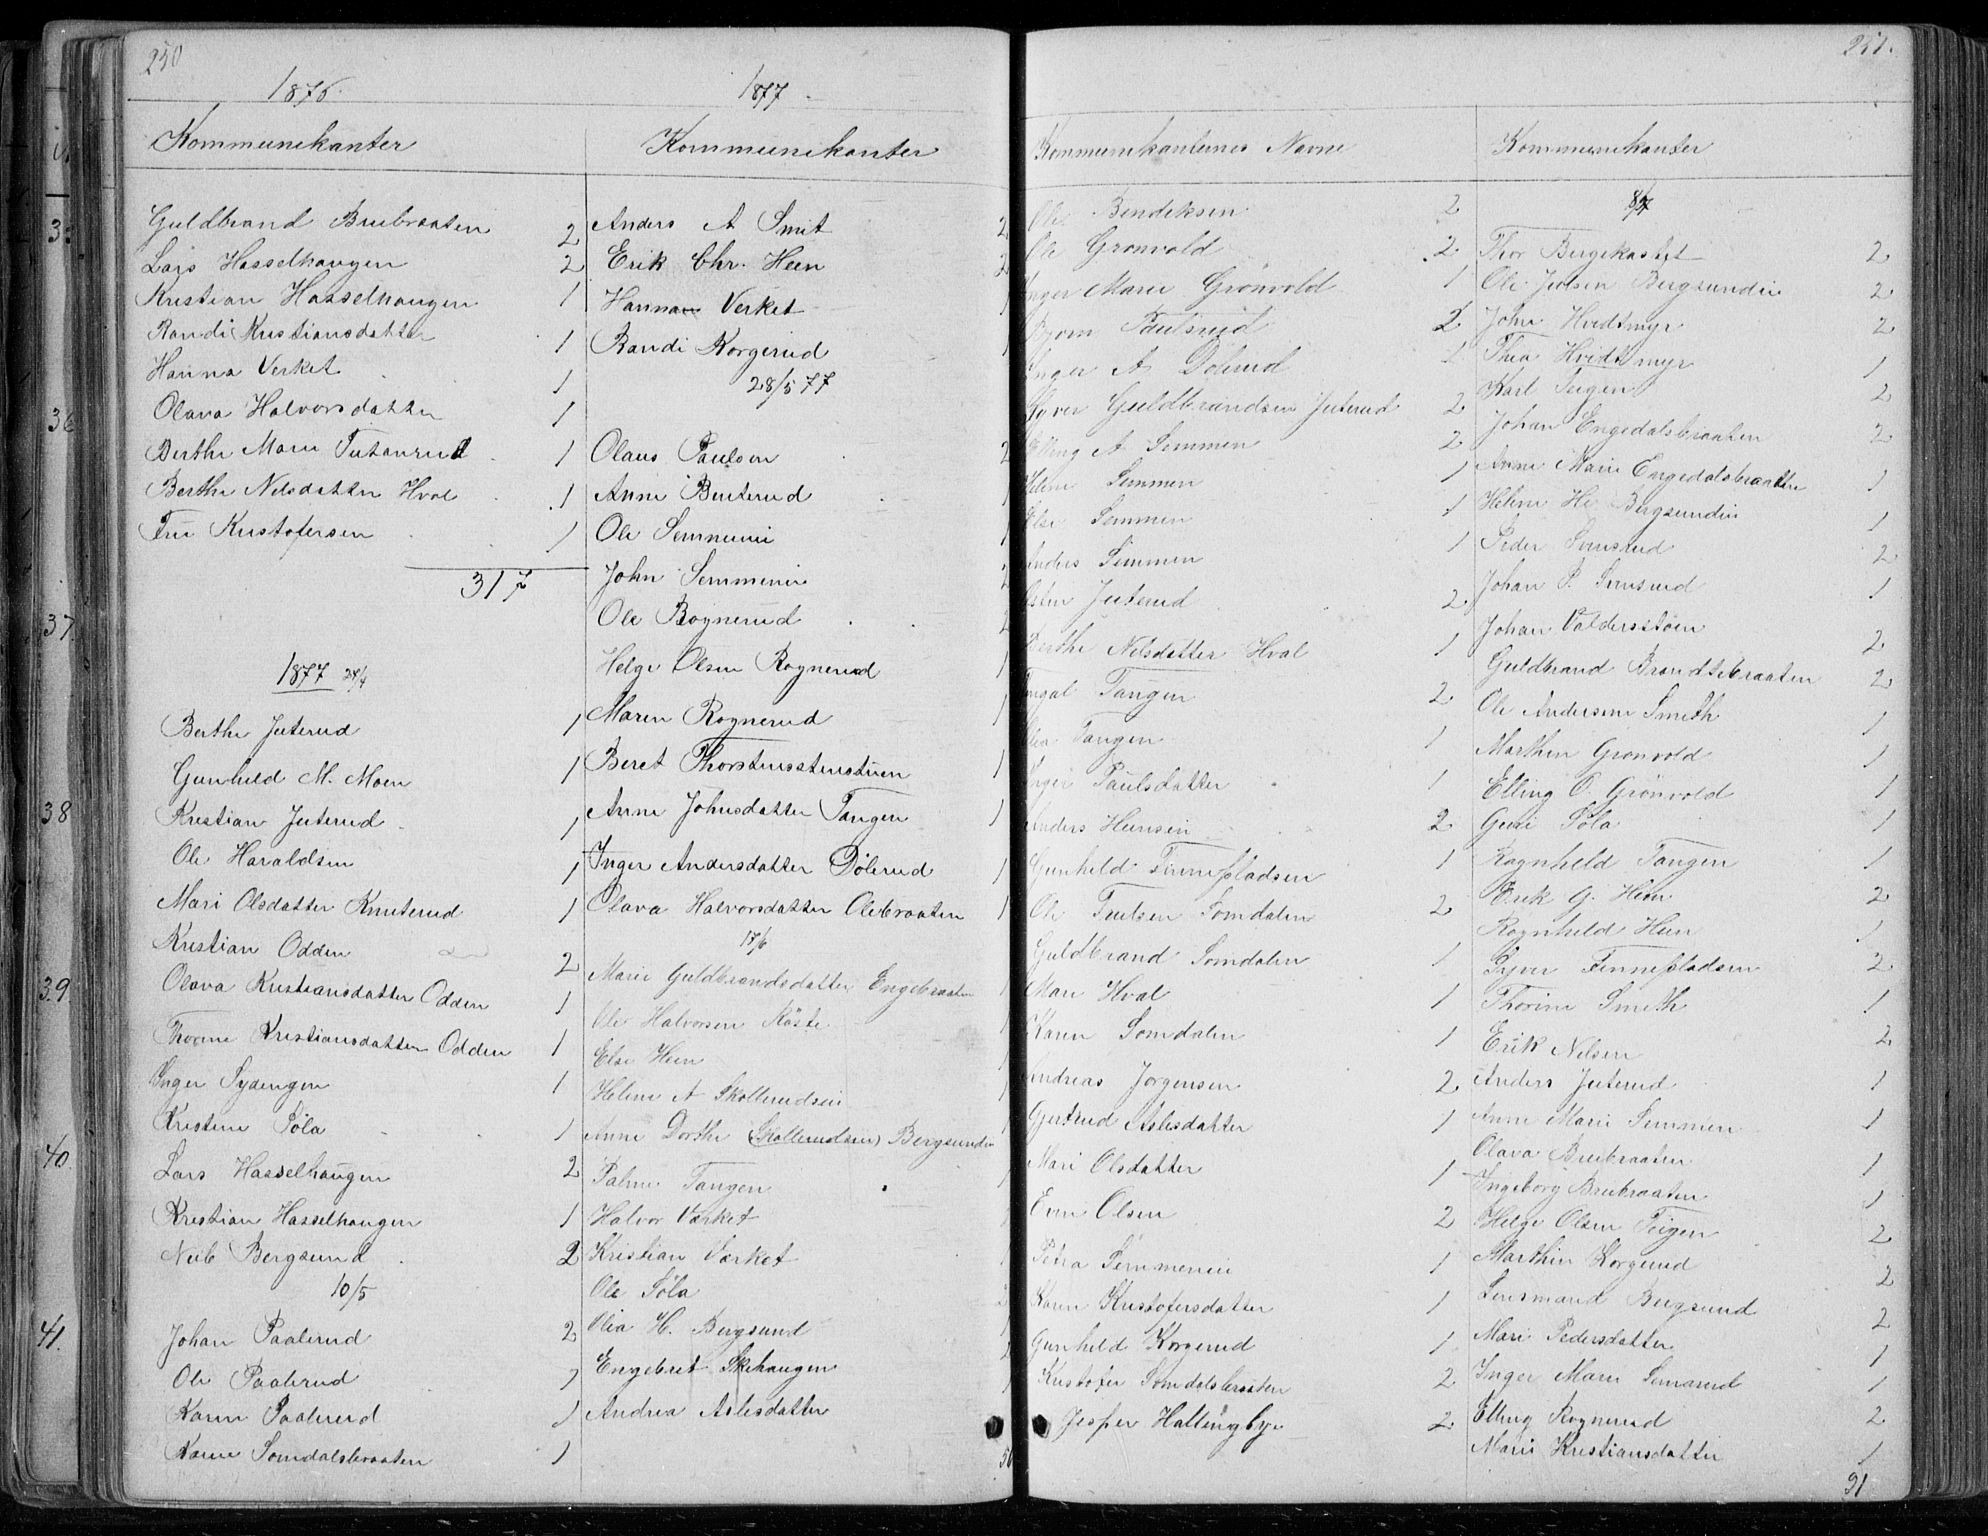 250
1876.
Kommunikanter
Guldbrand Brubraaten 2
Lars Hasselhaugen 2
Kristian Hasselhaugen 1
Randi Kristiansdatter 1
Hanna Verket 1
Olava Halvorsdatter 1
Berthe Marie 1
Berthe Nilsdatter Hval 1
Fru Kristofersen 1
317
1877 24/4
Berthe Juterud 1
Gunhild M. Moen 1
Kristian Juterud 1
Ole Haraldsen 1
Mari Olsdatter Knuterud 1
Kristian Odden 2
Olava Kristiansdatter Odden 1
Thorine Kristiansdatter Odden 1
Inger Sydengen 1
Kristine Søla 1
Lars Hasselhaugen 2
Kristian Hasselhaugen 1
Neub Bergsund 2
10/5
Johan Paalerud 2
Ole Paalerud
Karen Paalerud 1
Karen Somdalsbraaten 1
1877
Kommunikanter
Anders A Smit 2
Erik Chr. Heen 2
Hanna Verket 1
Randi Korgerud 1
28/5 77
Olaus Paulsen 2
Anne Buterud 1
Ole Semmenie 1
John Semmenie 2
Ole Rognerud 2
Helge Olsen Rognerud 1
Maren Rognerud 1
Beret Thorstensstenstuen 1
Anne Johnsdatter Tangen 1
Inger Andersdatter Dølerud 1
Olava Halvorsdatter Olebraaten 1
17/6
Marie Guldbrandsdatter Engebraaten 1
Ole Halvorsen Røste 1
Else Heen 1
Helene A Skollerudseie 1
Anne Dorthe (Skollerudseie) Bergsundeie 1
Palme Tangen 1
Halvor Værket 1
Kristian Værket 1
Ole Søla 2
Olia H. Bergsund 1
Engebret Skihaugen 2
Andrea Aslesdatter 1
50
251.
Kommunikanternes Navne
Ole Bendiksen 2
Ole Grønvold 2
Inger Marie Grønvold 1
Bjørn Paulsrud 2
Inger A Dølerud 1
Syver Guldbrandsen Juterud 2
Elling A Semmen 2
Helene Semmen 1
Else Semmen 1
Anders Semmen 1
Østen Juterud 2
Berthe Nilsdatter Hval 1
Fingal Tangen 2
Olea Tangen 1
Inger Paulsdatter 1
Anders Hansen 2
Gunhild Finnefladsen 1
Ole Truelsen Somdalen 2
Guldbrand Somdalen 1
Mari Hval 1
Karen Somdalen 1
Andreas Jørgensen 2
Gjertrud Aslesdatter 1
Mari Olsdatter 1
Even Olsen 2
Petra Semmeneie 1
Karen Kristofersdatter 1
Gunhild Korgerud 1
Kristofer Somdalsbraaten 2
Jesper Hallingbye 2
Kommunikanter
8/7
Thor Bergekastet 2
Ole Julsen Bergsundeie 2
John Hvidtmyr 2
Thea Hvidtmyr 1
Karl Teigen 2
Johan Engedalsbraaten 2
Anne Marie Engedalsbraaten 1
Helene He. Bergsundeie 1
Peder Semsrud 2
Johan P. Semsrud 1
Johan Valdersstøen 2
Guldbrand Brandtebraaten 2
Ole Andersen Smeth 1
Marthin Grønvold 1
Elling O. Grønvold 1
Guri Søla 1
Ragnhild Tangen 1
Erik G. Heen 2
Ragnhild Heen 1
Syver Finnefladsen 2
Thorine Smeth 1
Erik Nilsen 2
Anders Juterud 1
Anne Marie Semmen 1
Olava Brubraaten 1
Ingeborg Bruebraaten 1
Helge Olsen Teigen 2
Marthin Korgerud 2
Lensmand Bergsund 2
Mari Pedersdatter 1
Inger Marie Semsrud 1
Elling Rognerud 2
Marie Kristiansdatter 1
91
35
36
37.
38
39.
40.
41.